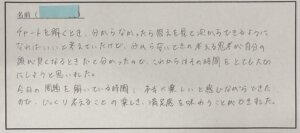 名前（　　　）
チャートを解くとき、分からなかったら答えを見て次からできるように
なればいいと考えていたけど、分からないときの考える思考が自分の
頭が良くなるときだと分かったので、これからはその時間をとても大切
にしようと思いました。
今日の問題を解いている時間、本当に楽しいと感じながらできた
ので、じっくり考えることの楽しさ、満足感を味わうことができました。